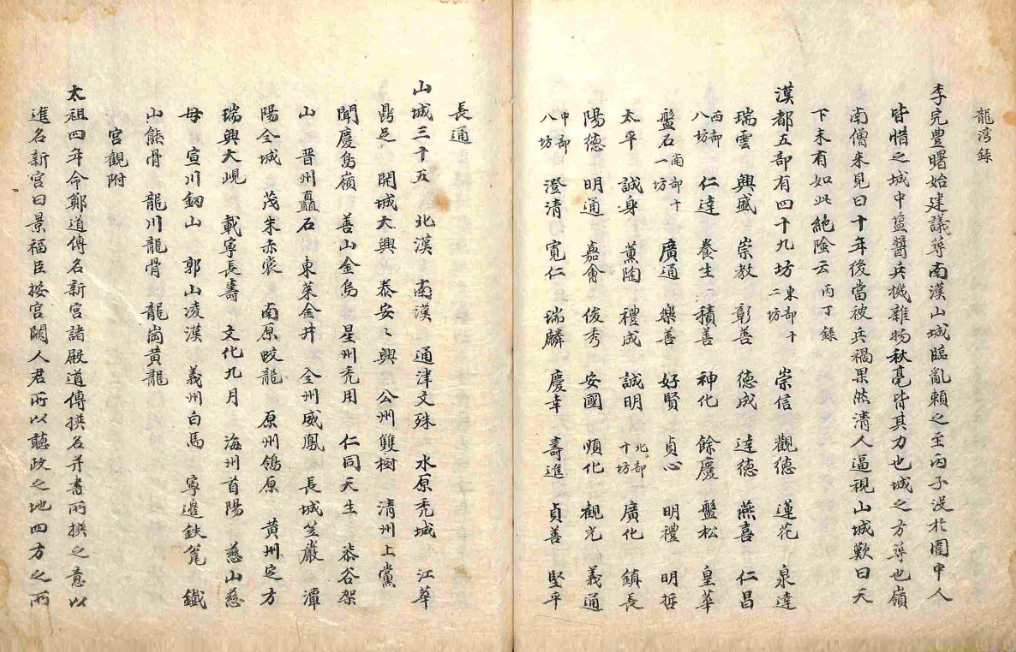 龍灣錄
李完豊曙始建議築南漢山城臨亂賴之至丙子沒於圍中人
皆惜之城中鹽醬兵械雜物秋毫皆其力也城之方築也嶺
南僧來見曰十年後當被兵禍果然清人逼視山城歎曰天
下未有如此絶險云 丙丁錄
漢都五部有四十九坊 東部十二坊 崇信 觀德 蓮花 泉達
瑞雲 興盛 崇教 彰善 德成 達德 燕喜 仁昌
西部八坊 仁達 養生 積善 神化 餘慶 盤松 皇華
盤石 南部十一坊 廣通 樂善 好賢 貞心 明禮 明哲
太平 誠身 薰陶 禮成 誠明 北部十坊 廣化 鎮長
陽德 明通 嘉會 俊秀 安國 順化 觀光 義通
中部八坊 澄清 寬仁 瑞麟 慶幸 壽進 貞善 堅平
長通
山城三十五 北漢 南漢 通津文殊 水原禿城 江華
鼎足 開城大興 泰安〻興 公州雙樹 清州上黨
聞慶鳥嶺 善山金烏 星州禿用 仁同天生 柒谷架
山 晋州矗石 東萊金井 全州威鳳 長城笠巖 潭
陽金城 茂朱赤裳 南原蛟龍 原州鴒原 黄州定方
瑞興大峴 載寧長壽 文化九月 海州首陽 慈山慈
母 宣川釼山 郭山凌漢 義州白馬 寧邊鉄瓮 鐵
山熊骨 龍川龍骨 龍崗黄龍
宮觀附
太祖四年命鄭道傳名新宮諸殿道傳撰名并書所撰之意以
進名新宮曰景福臣按宮闕人君所以聽政之地四方之所